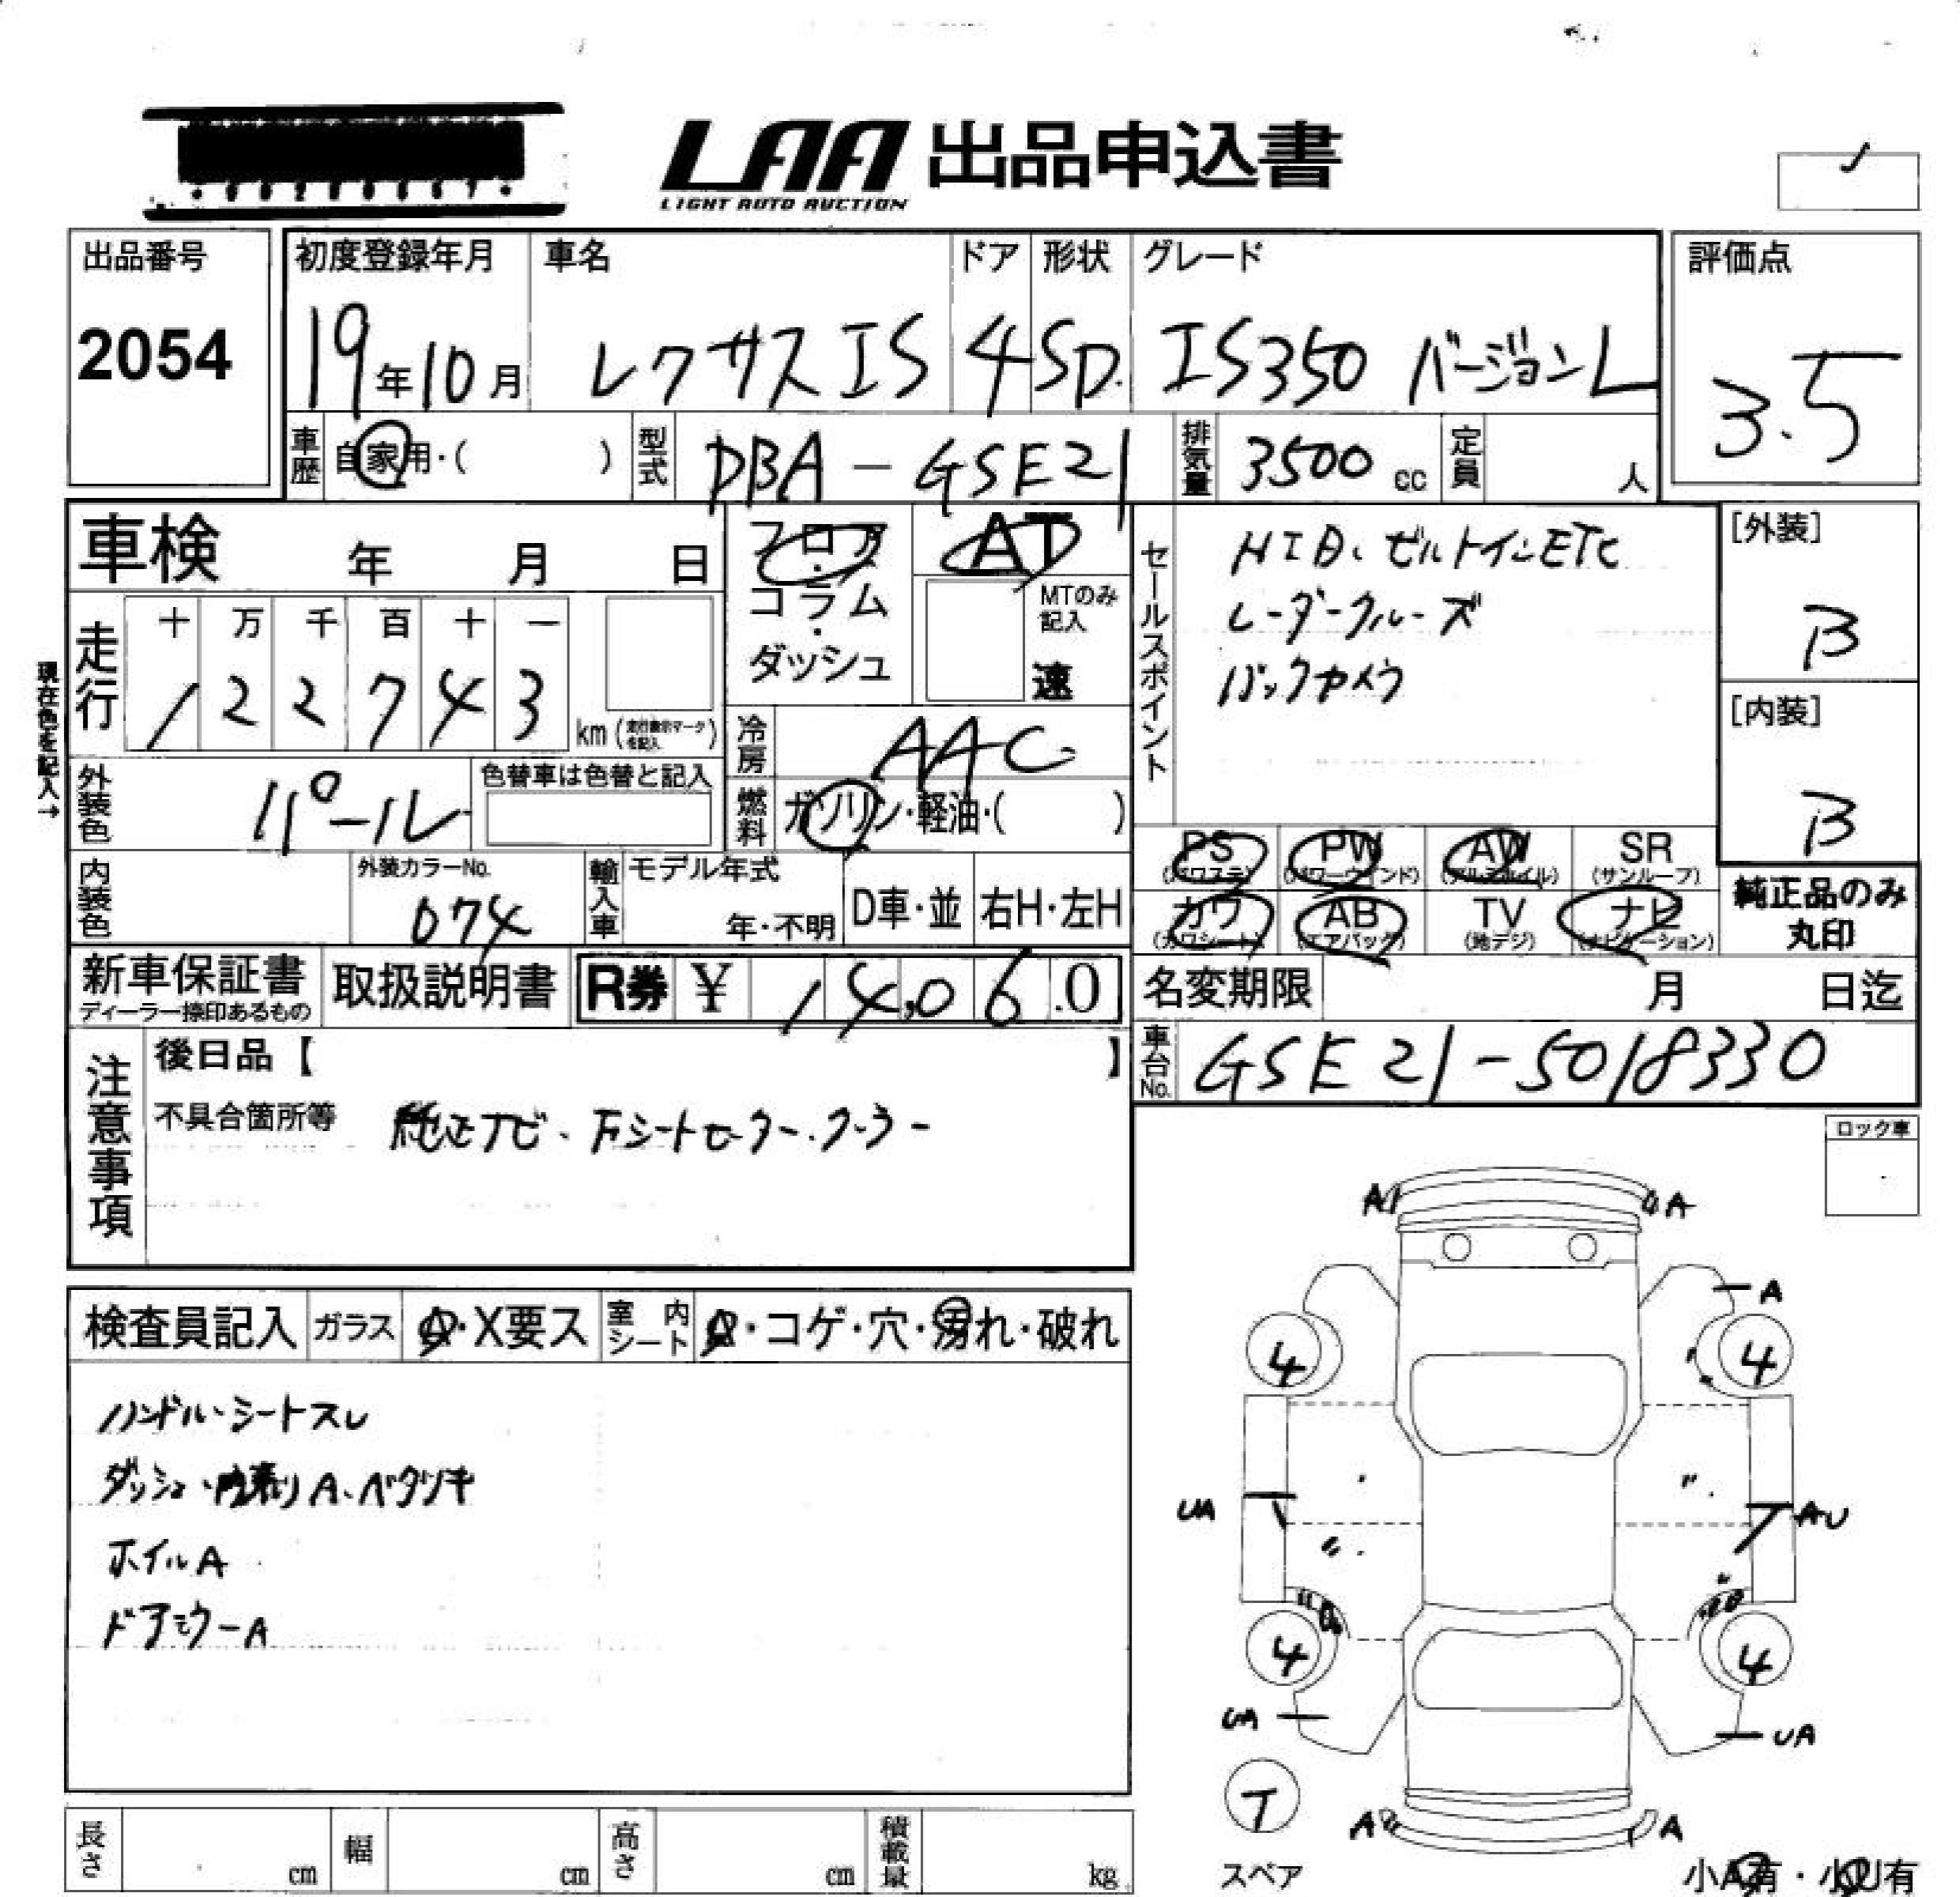 LAA 出品申込書
LIGHT AUTO AUCTION
出品番号
2054
初度登録年月
19年10月
車名
レクサスIS
ドア
4
形状
SD.
グレード
IS350 バージョンL
評価点
3.5
車歴
自家用・( )
型式
DBA-GSE21
排気量
3500 cc
定員
人
車検 年 月 日
フロア・コラム・ダッシュ
AT
MTのみ記入
速
セールスポイント
HID、ビルトインETC
レーダークルーズ
バックカメラ
[外装]
B
[内装]
B
現在色を記入→
走行
十 万 千 百 十 一
1 2 2 7 4 3
km (走行表示マークを記入)
冷房
AAC
外装色
パール
色替車は色替と記入
燃料
ガソリン・軽油・( )
内装色
外装カラーNo.
074
輸入車
モデル年式
年・不明
D車・並
右H・左H
PS (パワステ)
PW (パワーウインド)
AW (アルミホイル)
SR (サンルーフ)
カワ (カワシート)
AB (エアバッグ)
TV (地デジ)
ナビ (ナビゲーション)
純正品のみ
丸印
新車保証書
ディーラー捺印あるもの
取扱説明書
R券 ¥ 14,060.0
名変期限 月 日迄
車台No.
GSE21-5018330
注意事項
後日品【 】
不具合箇所等
純正ナビ、シートヒーター、クーラー
ロック車
A A
A
4 4
UA AU
4 4
UA UA
T
スペア
A A
小A有・小U有
検査員記入
ガラス
A・X要ス
室内シート
A・コゲ・穴・汚れ・破れ
ハンドル・シートスレ
ダッシュ、内張りA、ベタツキ
ホイルA
ドアミラーA
長さ cm
幅 cm
高さ cm
積載量 kg